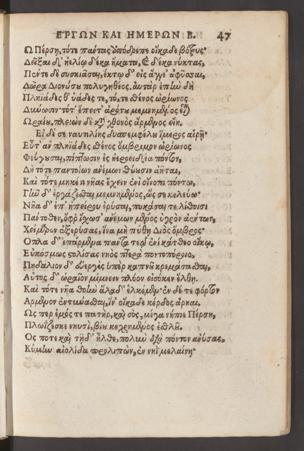 ΕΡΓΩΝ ΚΑΙ ΗΜΕΡΩΝ Β. 47
Ω Πέρση, τότε πάντας ἀπόδρεπε οἴκαδε βότρυς
Δεῖξαι δ' ἠελίῳ δέκα ἤματα, καὶ δέκα νύκτας,
Πέντε δὲ συσκιάσαι, ἕκτῳ δ' εἰς ἄγγε' ἀφύσσαι,
Δῶρα Διονύσου πολυγηθέος. αὐτὰρ ἐπὴν δὴ
Πληϊάδες θ' ὑάδες τε, τό, τε σθένος ὠρίωνος
Δύνωσιν τότ' ἔπειτ' ἀρότου μεμνημένος εἶναι
Ὡραίου, πλειὼν δὲ κατὰ χθονὸς ἄρμενος εἴη.
Εἰ δέ σε ναυτιλίης δυσπεμφέλου ἵμερος αἱρῇ
Εὖτ' ἂν πληϊάδες σθένος ὄμβριμον ὠρίωνος
Φεύγουσαι, πίπτωσιν ἐς ἠεροειδέα πόντον,
Δὴ τότε παντοίων ἀνέμων θύουσιν ἀῆται,
Καὶ τότε μηκέτι νῆας ἔχειν ἐνὶ οἴνοπι πόντῳ,
Γῆν δ' ἐργάζεσθαι μεμνημένος, ὥς σε κελεύω
Νῆα δ' ἐπ' ἠπείρου ἐρύσαι, πυκάσαι τε λίθοισι
Πάντοθεν, ὄφρ' ἴσχωσ' ἀνέμων μένος ὑγρὸν ἀέντων,
Χείμαρον ἐξερύσας, ἵνα μὴ πύθῃ Διὸς ὄμβρος
Ὅπλα δ' ἐπάρμενα πάντα τεῷ ἐνικάτθεο οἴκῳ,
Εὐκόσμως στολίσας νηὸς πτερὰ ποντοπόροιο,
Πηδάλιον δ' εὐεργὲς ὑπὲρ καπνοῦ κρεμάσασθαι,
Αὐτὸς δ' ὡραῖον μίμνειν πλόον εἰσόκεν ἔλθῃ.
Καὶ τότε νῆα θοὴν ἅλαδ' ἑλκέμεν· ἐν δέ τε φόρτον
Ἄρμενον ἐντύνασθαι, ἵν' οἴκαδε κέρδος ἄρηαι.
Ὥς περ ἐμός τε πατὴρ, καὶ σὸς, μέγα νήπιε Πέρση,
Πλωΐζεσκε νηυσὶ, βίου κεχρημένος ἐσθλοῦ.
Ὅς ποτε καὶ τῇδ' ἦλθε, πολὺν διὰ πόντον ἀνύσας,
Κύμην αἰολίδα προλιπών, ἐν νηῒ μελαίνῃ